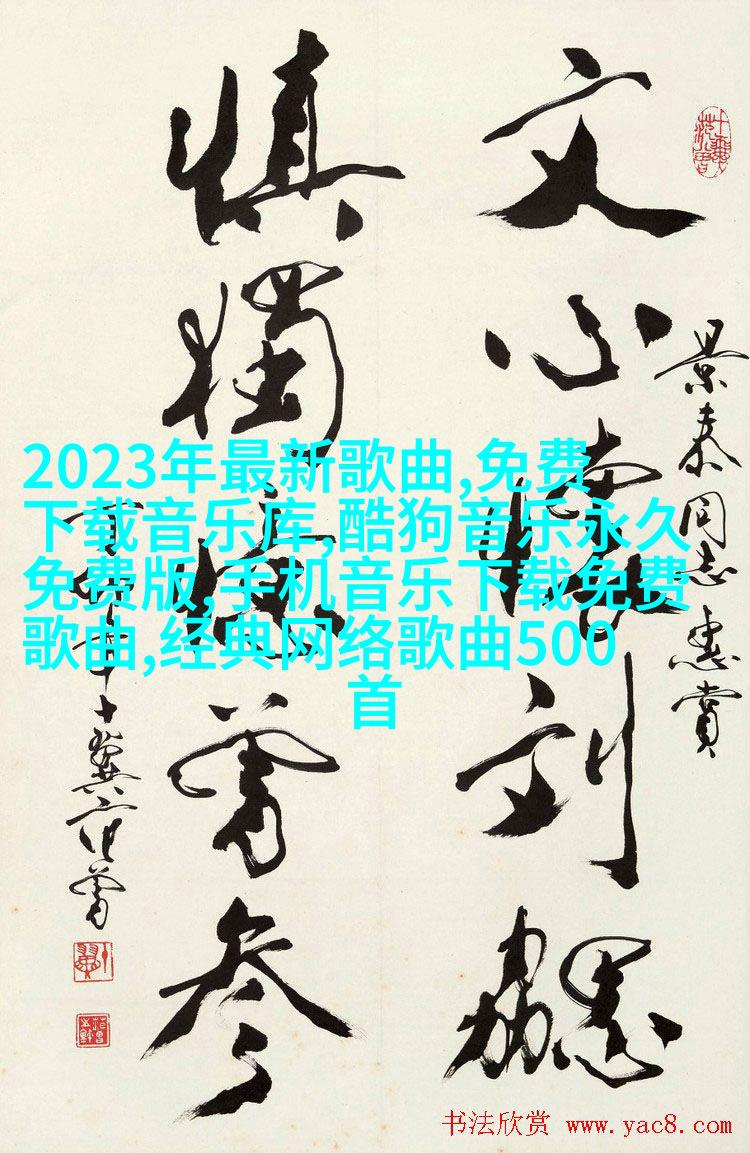 景泰同志惠賞
文心刘勰
慎獨曾參
十翼范曾
2023年最新歌曲,免费
下载音乐库,酷狗音乐永久
免费版,手机音乐下载免费
歌曲,经典网络歌曲500
首
书法欣赏 www.yac8.com